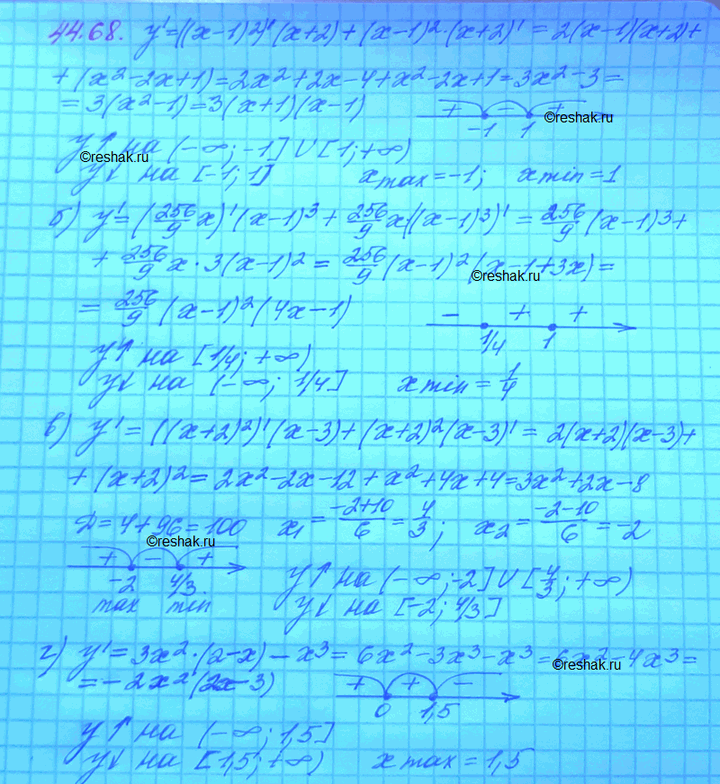 44.68. y' = ((x-1)²)'(x+2) + (x-1)²·(x+2)' = 2(x-1)(x+2)+
+ (x²-2x+1) = 2x²+2x-4+x²-2x+1 = 3x²-3 =
= 3(x²-1) = 3(x+1)(x-1)
+ - +
-1 1
©reshak.ru
y↑ на (-∞; -1] ∪ [1; +∞)
©reshak.ru
y↓ на [-1; 1] xmax = -1; xmin = 1
б) y' = (256/9 x)'(x-1)³ + 256/9 x((x-1)³)' = 256/9 (x-1)³+
+ 256/9 x · 3(x-1)² = 256/9 (x-1)²(x-1+3x) =
©reshak.ru
= 256/9 (x-1)²(4x-1)
- + +
1/4 1
y↑ на [1/4; +∞)
y↓ на (-∞; 1/4] xmin = 1/4
в) y' = ((x+2)²)'(x-3) + (x+2)²(x-3)' = 2(x+2)(x-3)+
+ (x+2)² = 2x²-2x-12+x²+4x+4 = 3x²+2x-8
D = 4+96 = 100 x₁ = (-2+10)/6 = 4/3; x₂ = (-2-10)/6 = -2
©reshak.ru
+ - +
-2 4/3
max min
y↑ на (-∞; -2] ∪ [4/3; +∞)
y↓ на [-2; 4/3]
г) y' = 3x²·(2-x) - x³ = 6x²-3x³-x³ = 6x²-4x³ =
©reshak.ru
= -2x²(2x-3)
+ + -
0 1,5
y↑ на (-∞; 1,5]
y↓ на [1,5; +∞) xmax = 1,5